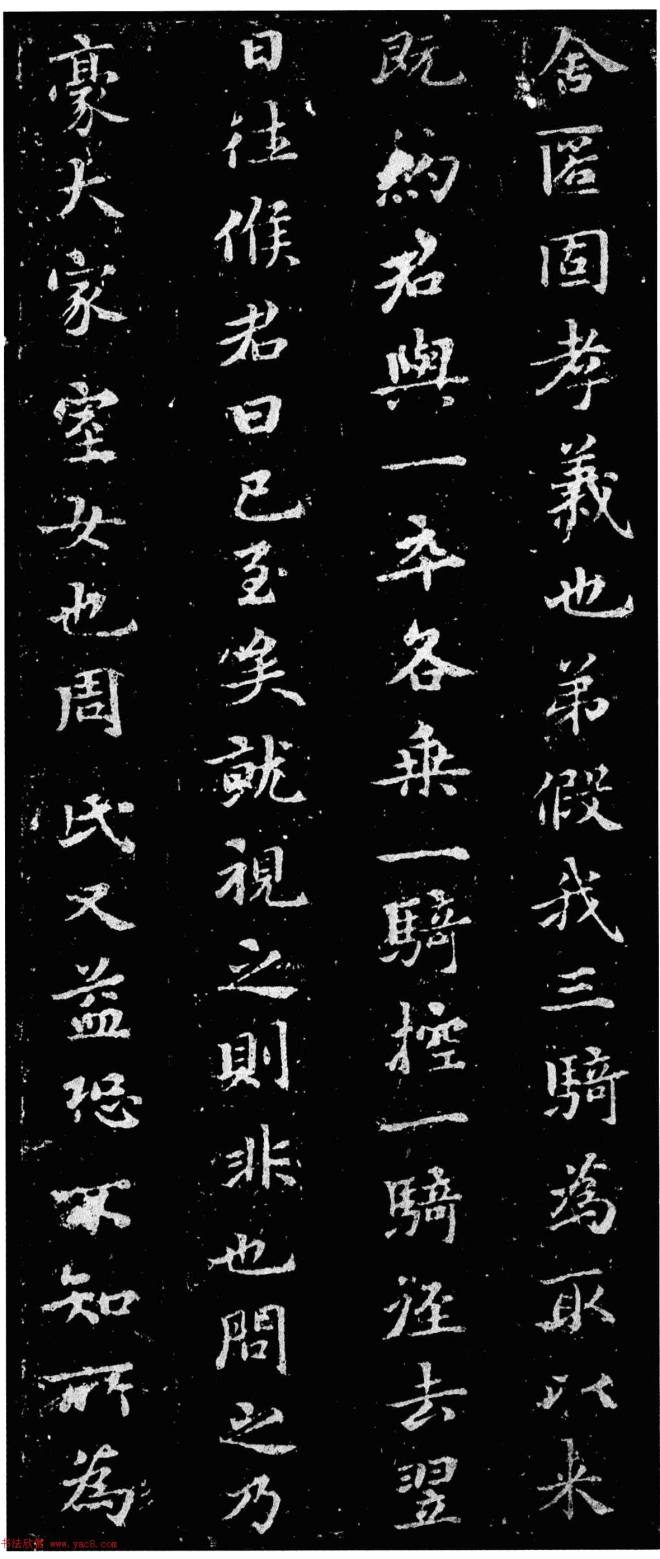 舍匿固孝義也弟假我三騎為取以来
既約君與一卒各乗一騎控一騎徑去翌
日往候君曰已至矣就視之則非也問之乃
豪大家室女也周氏又益恐不知所為
书法欣赏 www.yac8.com